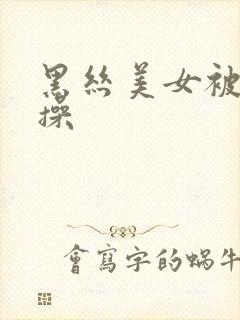 黑絲美女被
操
會寫字的蝸牛